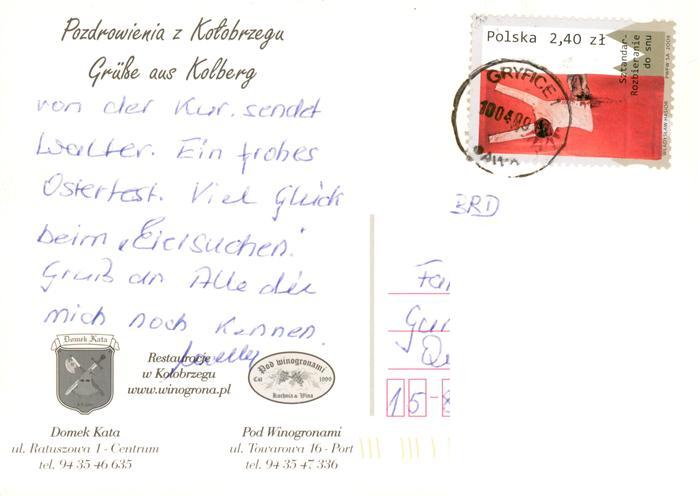 Pozdrowienia z Kołobrzegu
Grüße aus Kolberg
von der Kur. sendet
Walter. Ein frohes
Osterfest. Viel Glück
beim „Eiersuchen."
Gruß an Alle die
mich noch kennen.
Polska 2,40 zł
Sztandar.
Rozbieranie
do snu
PWPW SA 2008
WŁADYSŁAW HASIOR
GRYFICE
100409
BRD
Fa
Gu
15-
Domek Kata
Restauracje
w Kołobrzegu
www.winogrona.pl
Pod winogronami
Cat 1999
Kuchnia & Wina
Domek Kata
ul. Ratuszowa 1 - Centrum
tel. 94 35 46 635
Pod Winogronami
ul. Towarowa 16 - Port
tel. 94 35 47 336